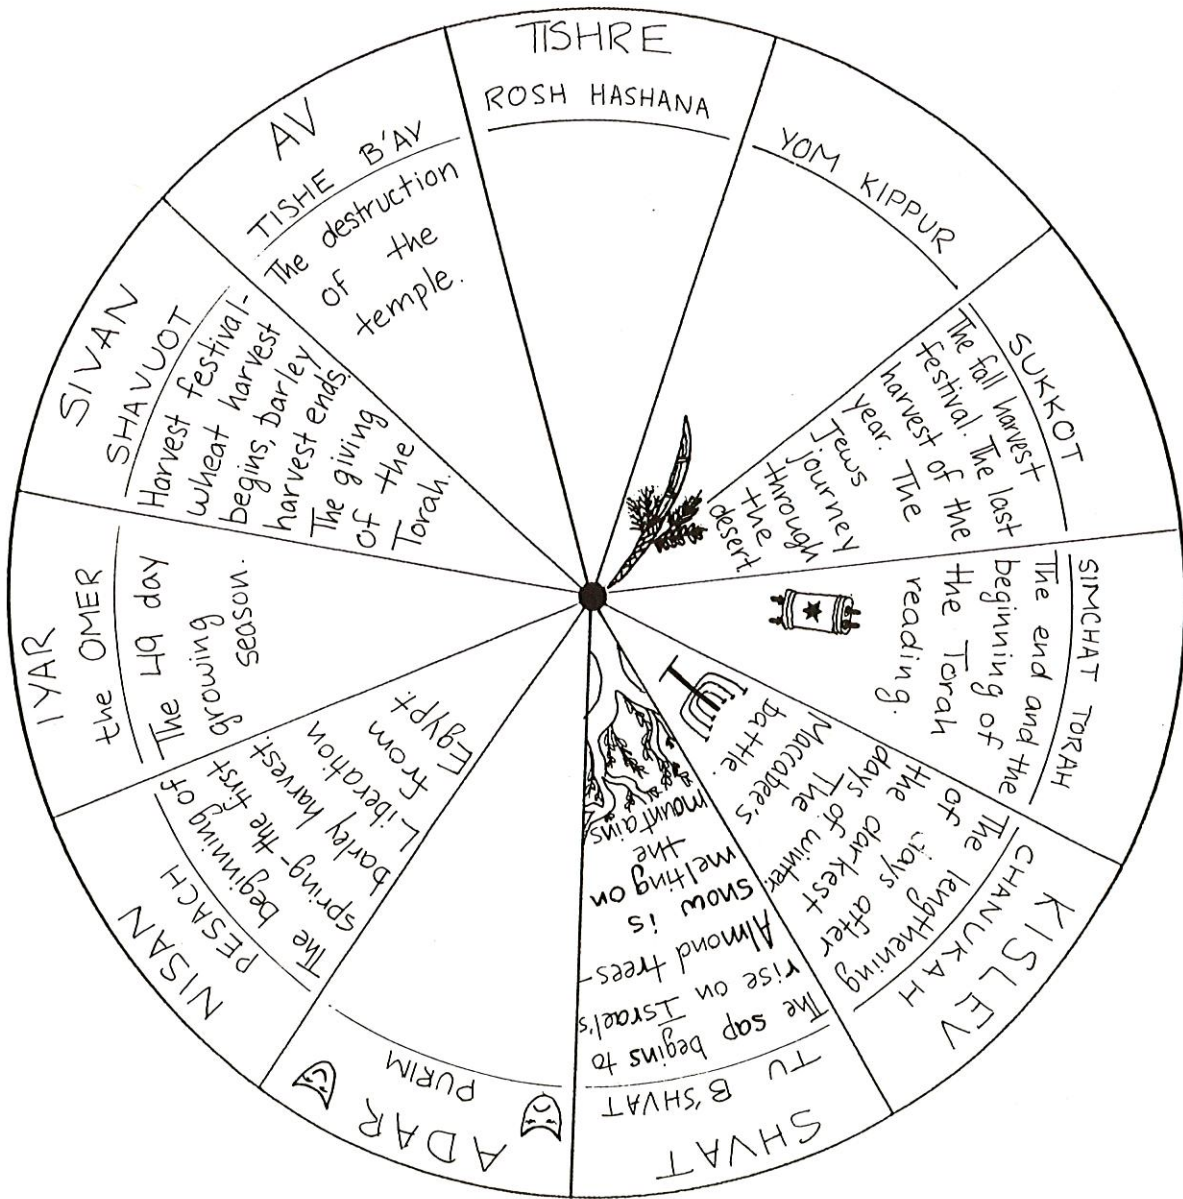 TISHRE
ROSH HASHANA
YOM KIPPUR
SUKKOT
The fall harvest
festival. The last
harvest of the
year. The
Jews
journey
through
the
desert
SIMCHAT TORAH
The end and the
beginning of
the Torah
reading.
KISLEV
CHANUKAH
The lengthening
of days after
the darkest
days of winter.
The
Maccabee's
battle.
SHVAT
TU B'SHVAT
The sap begins to
rise on Israel's
Almond trees-
snow is
melting on
the
mountains
ADAR
PURIM
NISAN
PESACH
The beginning of
spring- the first
barley harvest.
Liberation
from
Egypt.
IYAR
the OMER
The 49 day
growing
season.
SIVAN
SHAVUOT
Harvest festival-
wheat harvest
begins, barley
harvest ends.
The giving
of the
Torah.
AV
TISHE B'AV
The destruction
of the
temple.